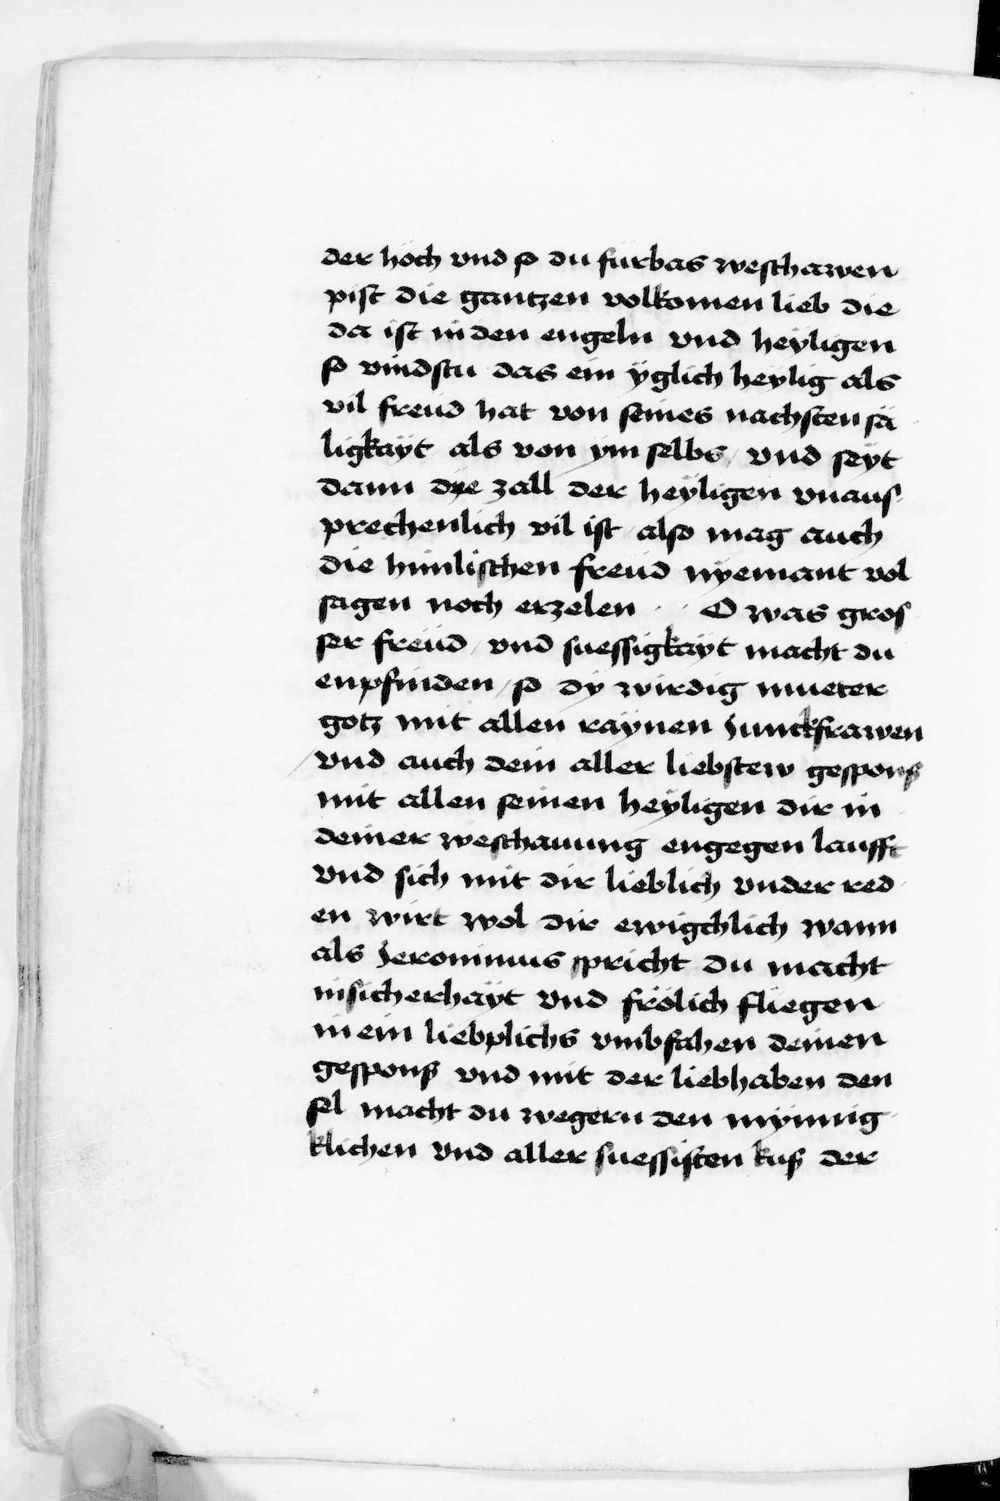 der höch vnd so du fürbas weschawen
pist die gantzen volkomen lieb die
da ist in den engeln vnd heÿligen
so vindstu das ein ÿglich heÿlig als
vil freüd hat von seines nachsten sä
ligkaÿt als von ym selbs / vnd seÿt
dann dye zall der heÿligen vnaus
prechenlich vil ist / also mag auch
die himlischen freüd nÿemant vol
sagen noch erzelen · · O was gros
ser freüd / vnd suessigkaÿt macht du
enpfinden / so dÿ wirdig mueter
gotz mit allen raÿnen Junckfrawen
vnd auch dein aller liebstew gespons
mit allen seinen heÿligen dir in
deiner weschauung engegen laufft
vnd sich mit dir lieblich vnder red
en wirt wol dir ewigchlich wann
als Jeronimus spricht du macht
in sicherhaÿt vnd frölich fliegen
in ein lieblichs vmbfahen deinen
gespons vnd mit der liebhaben den
sel macht du wegern den mÿnnig
klichen vnd aller suessisten kus der